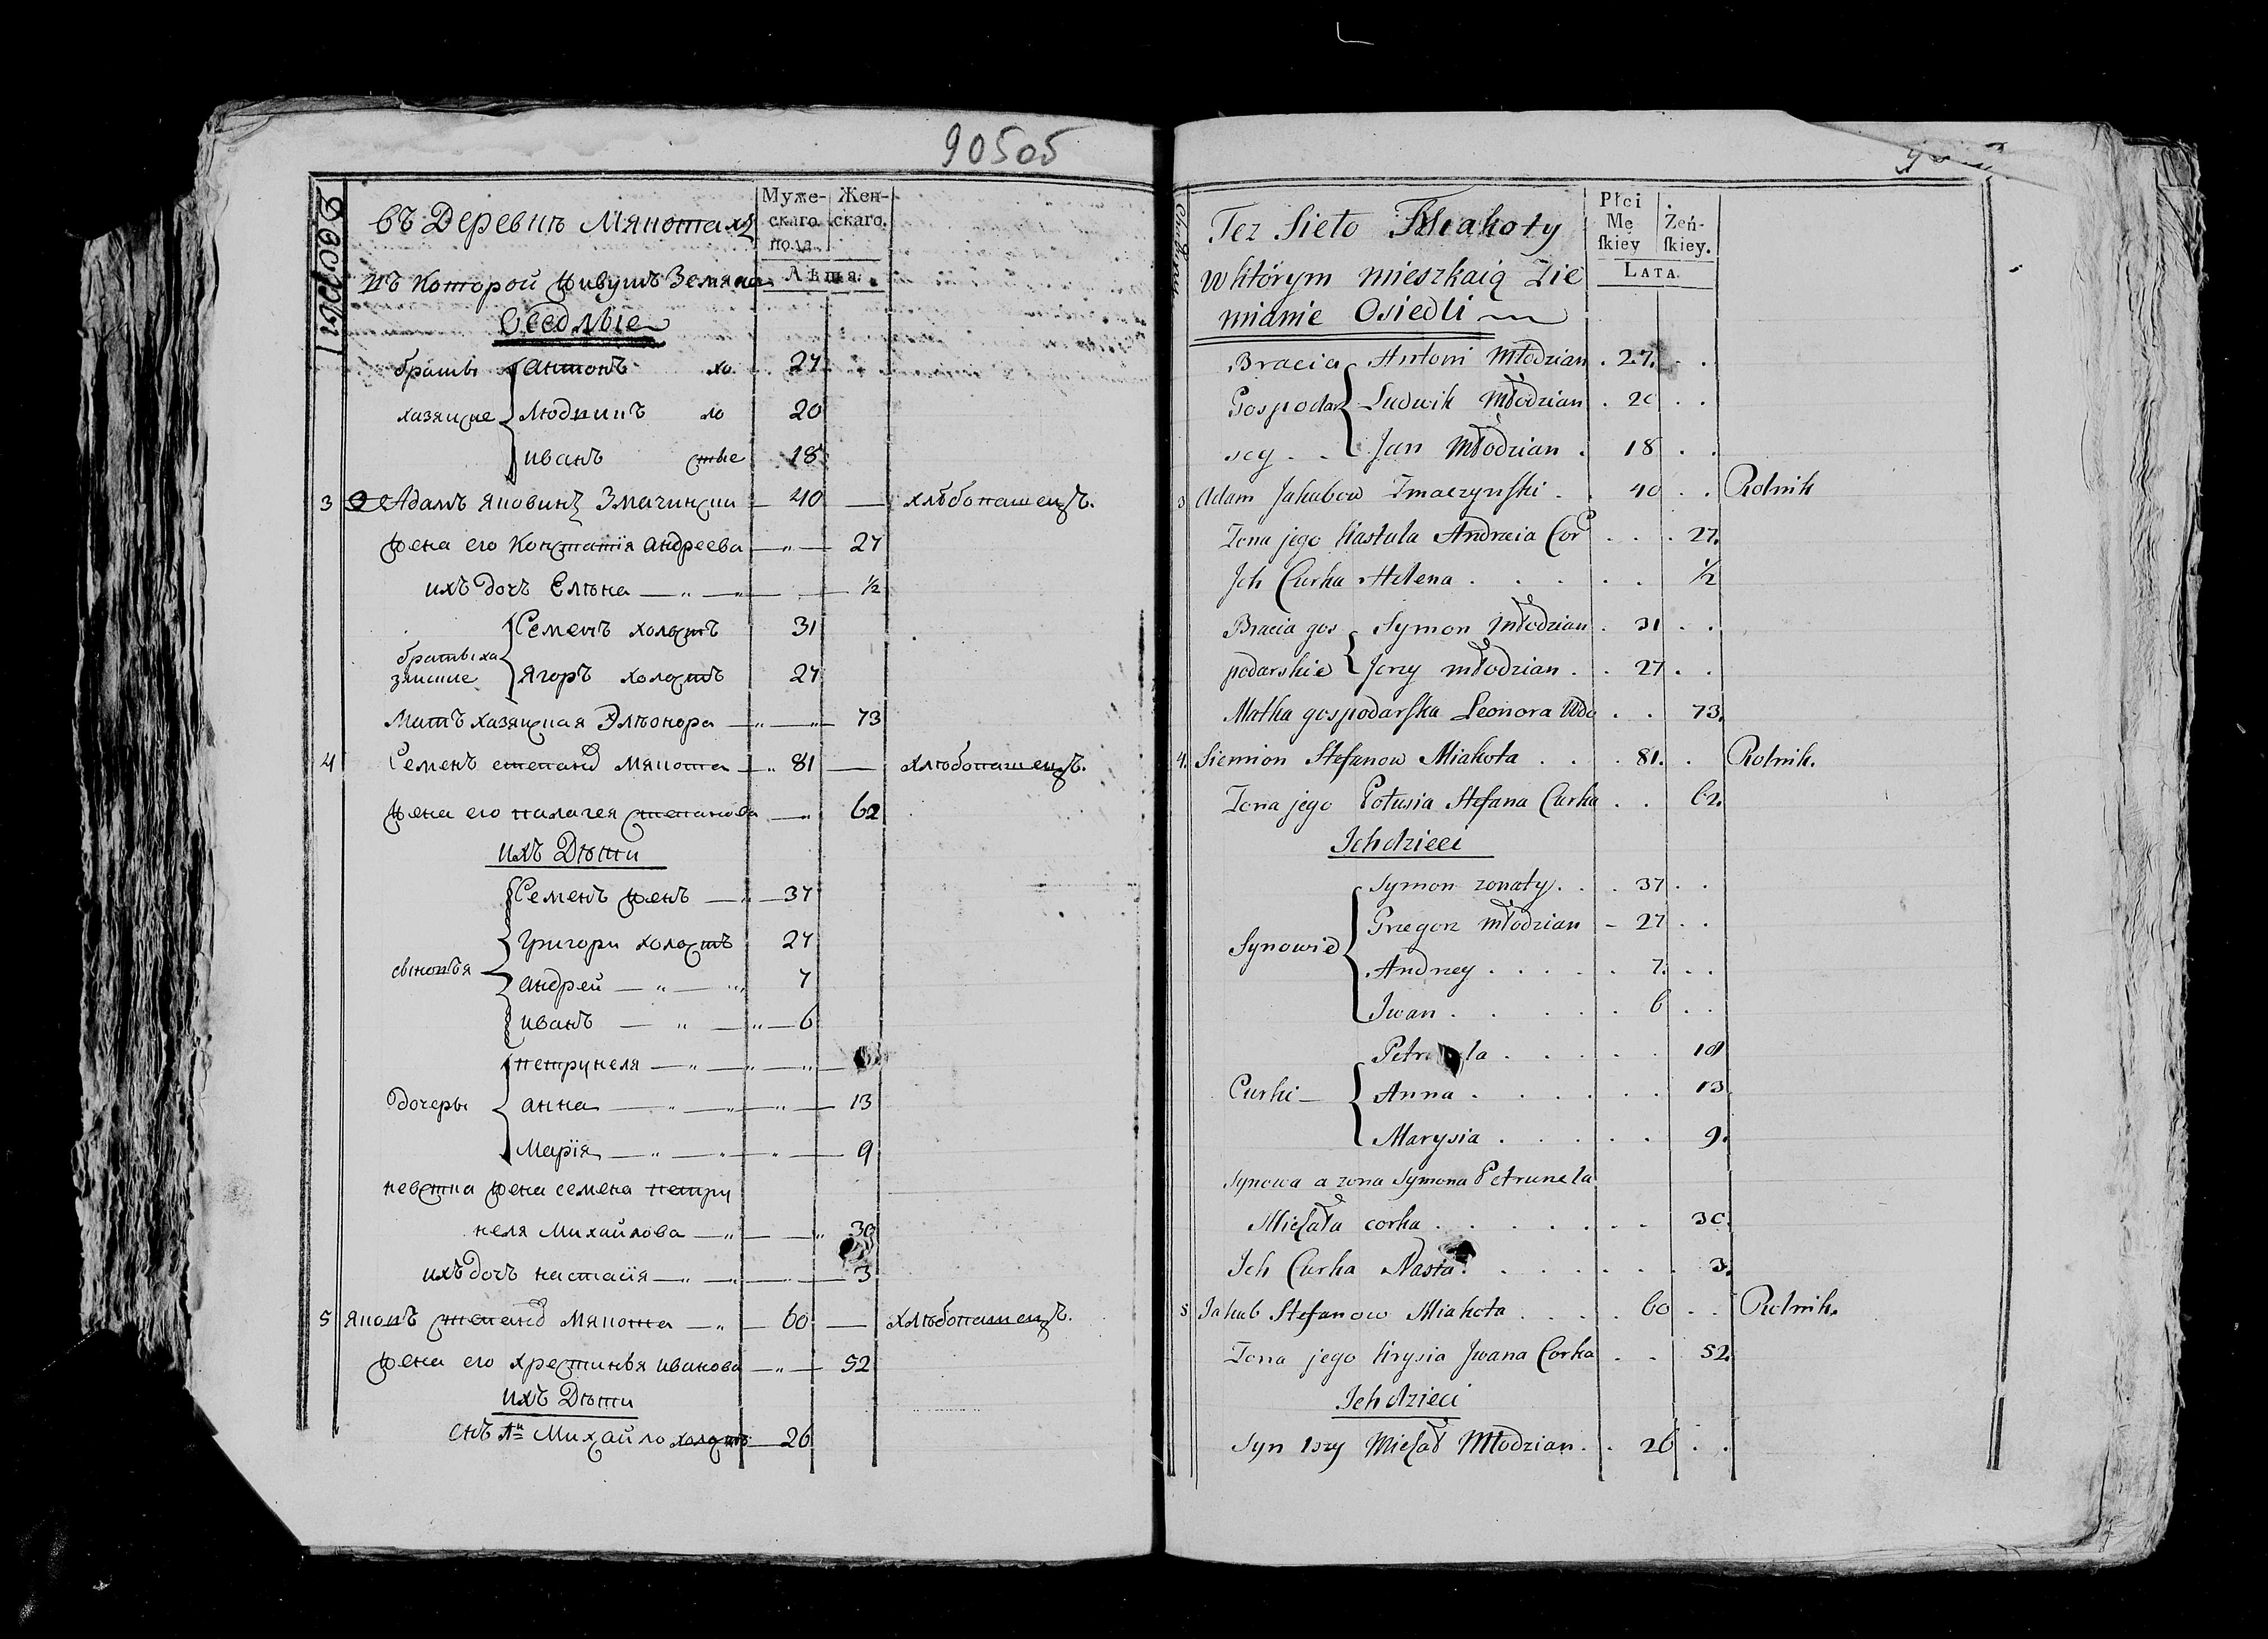 90505
Муже-
скаго
пола.
Жен-
скаго.
Лѣта.
въ Деревнѣ Мякотахъ
въ Которой живутъ Земяне
Оседлые
братья
хазяцкие
антонъ хо 27
Людвикъ ло 20
иванъ стые 18
3 Адамъ яковинъ Змачинский 40 хлѣбопашецъ.
жена его Констатія андреева 27
ихъ дочъ Елѣна ½
братья ха
зяцкие
Семенъ холостъ 31
Ягоръ холостъ 27
Матъ хазяцкая Элѣонора 73
4 Семенъ степановъ Мякота 81 хлѣбопашецъ.
жена его палагея степанова 62
ихъ Дѣти
сыновья
Семенъ женъ 37
Григори холостъ 27
андрей 7
иванъ 6
Дочеры
петрунеля
анна 13
Марія 9
невстка жена семена петру
неля Михайлова 30
ихъ дочъ настасія 3
5 яковъ степановъ Мякота 60 хлѣбопашецъ.
жена его хрестинья иванова 52
ихъ Дѣти
сынъ 1й Михайло холостъ 26
Płci
Mę
ſkiey
Żeń-
ſkiey.
LATA.
Tez Sieło Miakoty
w którym mieszkaią Zie
mianie Osiedli
Bracia
Gospodar
scy
Antoni Młodzian 27
Ludwik Młodzian 20
Jan Młodzian 18
3 Adam Jakubow Zmaczynſki 40 Rolnik
Zona jego Kastula Andrzeia Cor 27
Jch Curka Helena ½
Bracia gos
podarskie
Symon Młodzian 31
Jerzy młodzian 27
Matka gospodarſka Leonora Wdo 73
4. Siemion Stefanow Miakota 81. Rolnik.
Zona jego Połusia Stefana Curka 62.
Ich dzieci
Synowie
Symon zonaty 37
Grzegorz młodzian 27
Andrzey 7.
Jwan 6
Curki
Anna 13
Marysia 9.
Synowa a zona Symona Petrunela
Michała corka 30.
Jch Curka Nasta 3.
5 Jakub Stefanow Miakota 60 Rolnik.
Zona jego Krysia Jwana Corka 52.
Ich dzieci
Syn 1szy Michał Młodzian 26